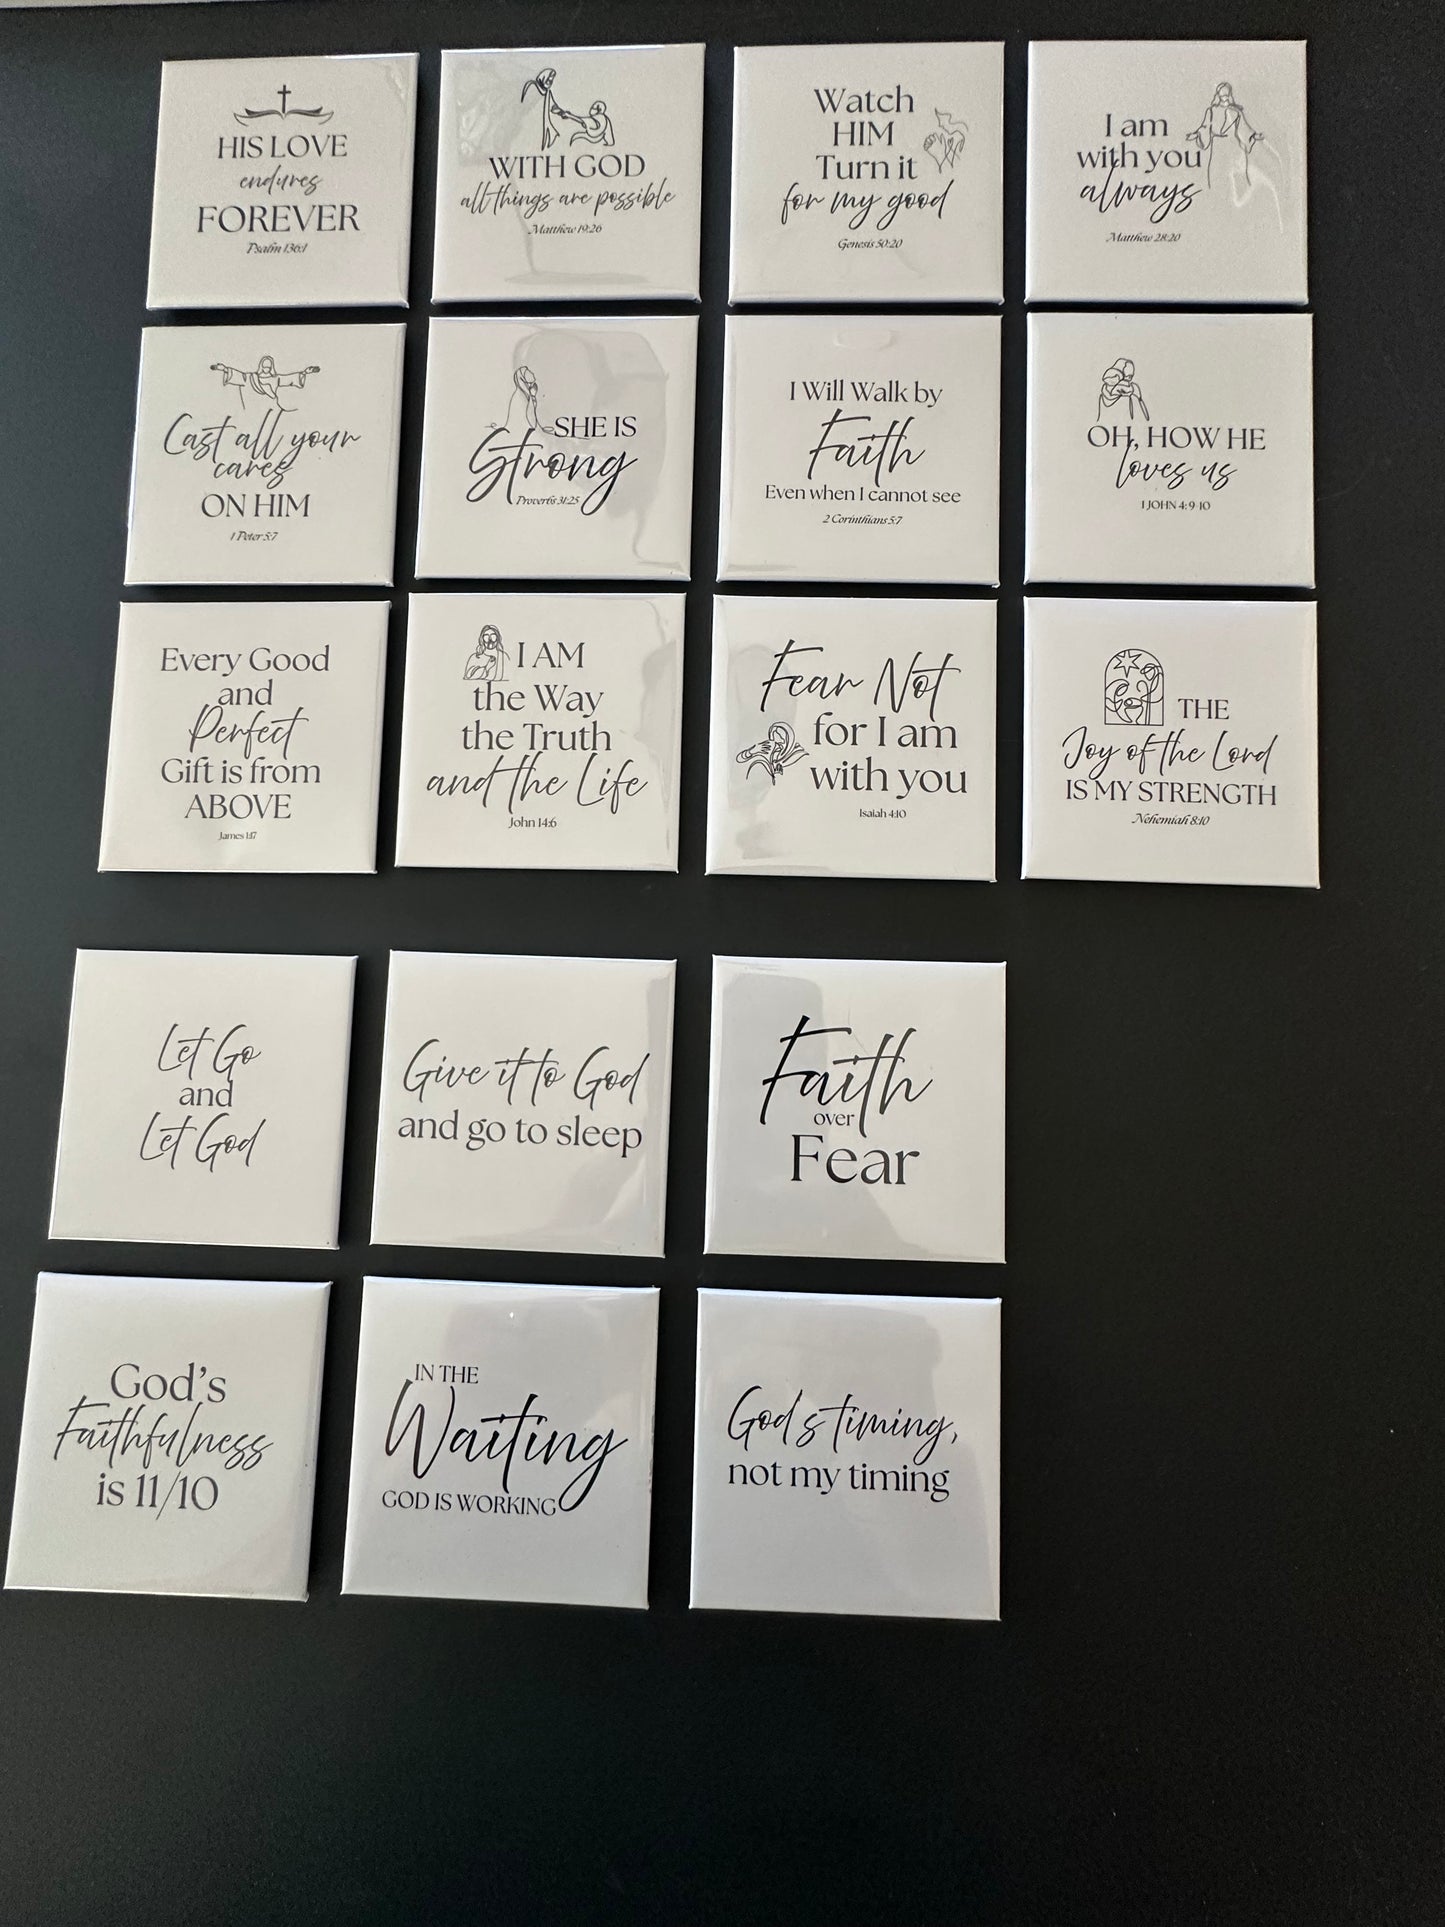 HIS LOVE
endures
FOREVER
Psalm 136:1
WITH GOD
all things are possible
Matthew 19:26
Watch
HIM
Turn it
for my good
Genesis 50:20
I am
with you
always
Matthew 28:20
Cast all your
cares
ON HIM
1 Peter 5:7
SHE IS
Strong
Proverbs 31:25
I Will Walk by
Faith
Even when I cannot see
2 Corinthians 5:7
OH, HOW HE
loves us
1 JOHN 4:9-10
Every Good
and
Perfect
Gift is from
ABOVE
James 1:17
I AM
the Way
the Truth
and the Life
John 14:6
Fear Not
for I am
with you
Isaiah 4:10
THE
Joy of the Lord
IS MY STRENGTH
Nehemiah 8:10
Let Go
and
Let God
Give it to God
and go to sleep
Faith
over
Fear
God's
Faithfulness
is 11/10
IN THE
Waiting
GOD IS WORKING
God's timing,
not my timing